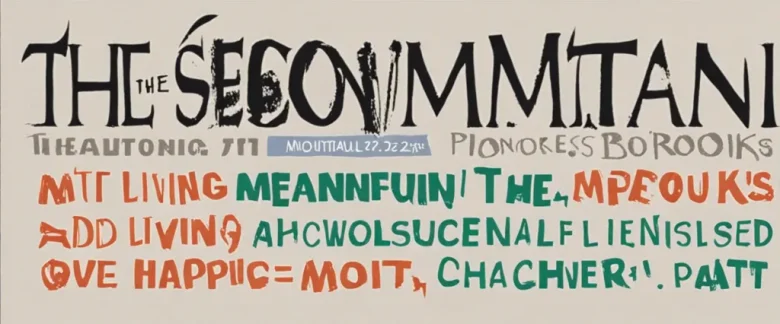 THE THE SECONMMTANI
THEAUTONIG 711 MOUTIAUL 27.2022 PIONORESS BOROOIKS
MTT LIVING MEANNFUIN THE, MPEOUK'S
ADD LIVING AHCWOLSUCENALFLIENISLSED
OVE HAPPIIC=MOIT, CHACHVER. PAATT